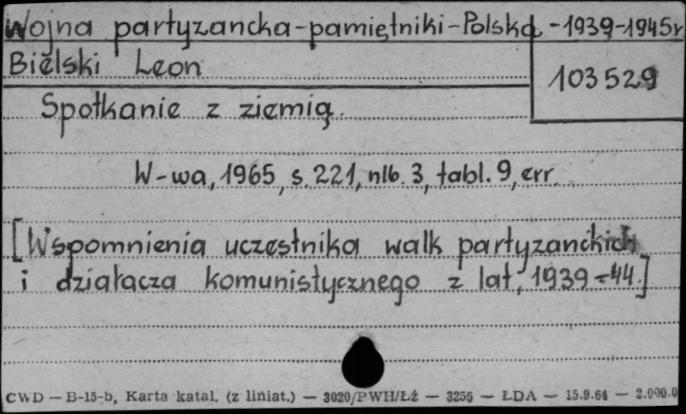 Wojna partyzancka-pamiętniki-Polska -1939-1945r
Bielski Leon
103529
Spotkanie z ziemią.
W-wa, 1965, s. 221, nlb. 3, tabl. 9, err.
[Wspomnienia uczęstnika walk partyzanckich
i działacza komunistycznego z lat, 1939-44.]
CWD — B-15-b, Karta katal. (z liniat.) — 3020/PWH/Łź — 3255 — ŁDA — 15.9.64 — 2.000.0